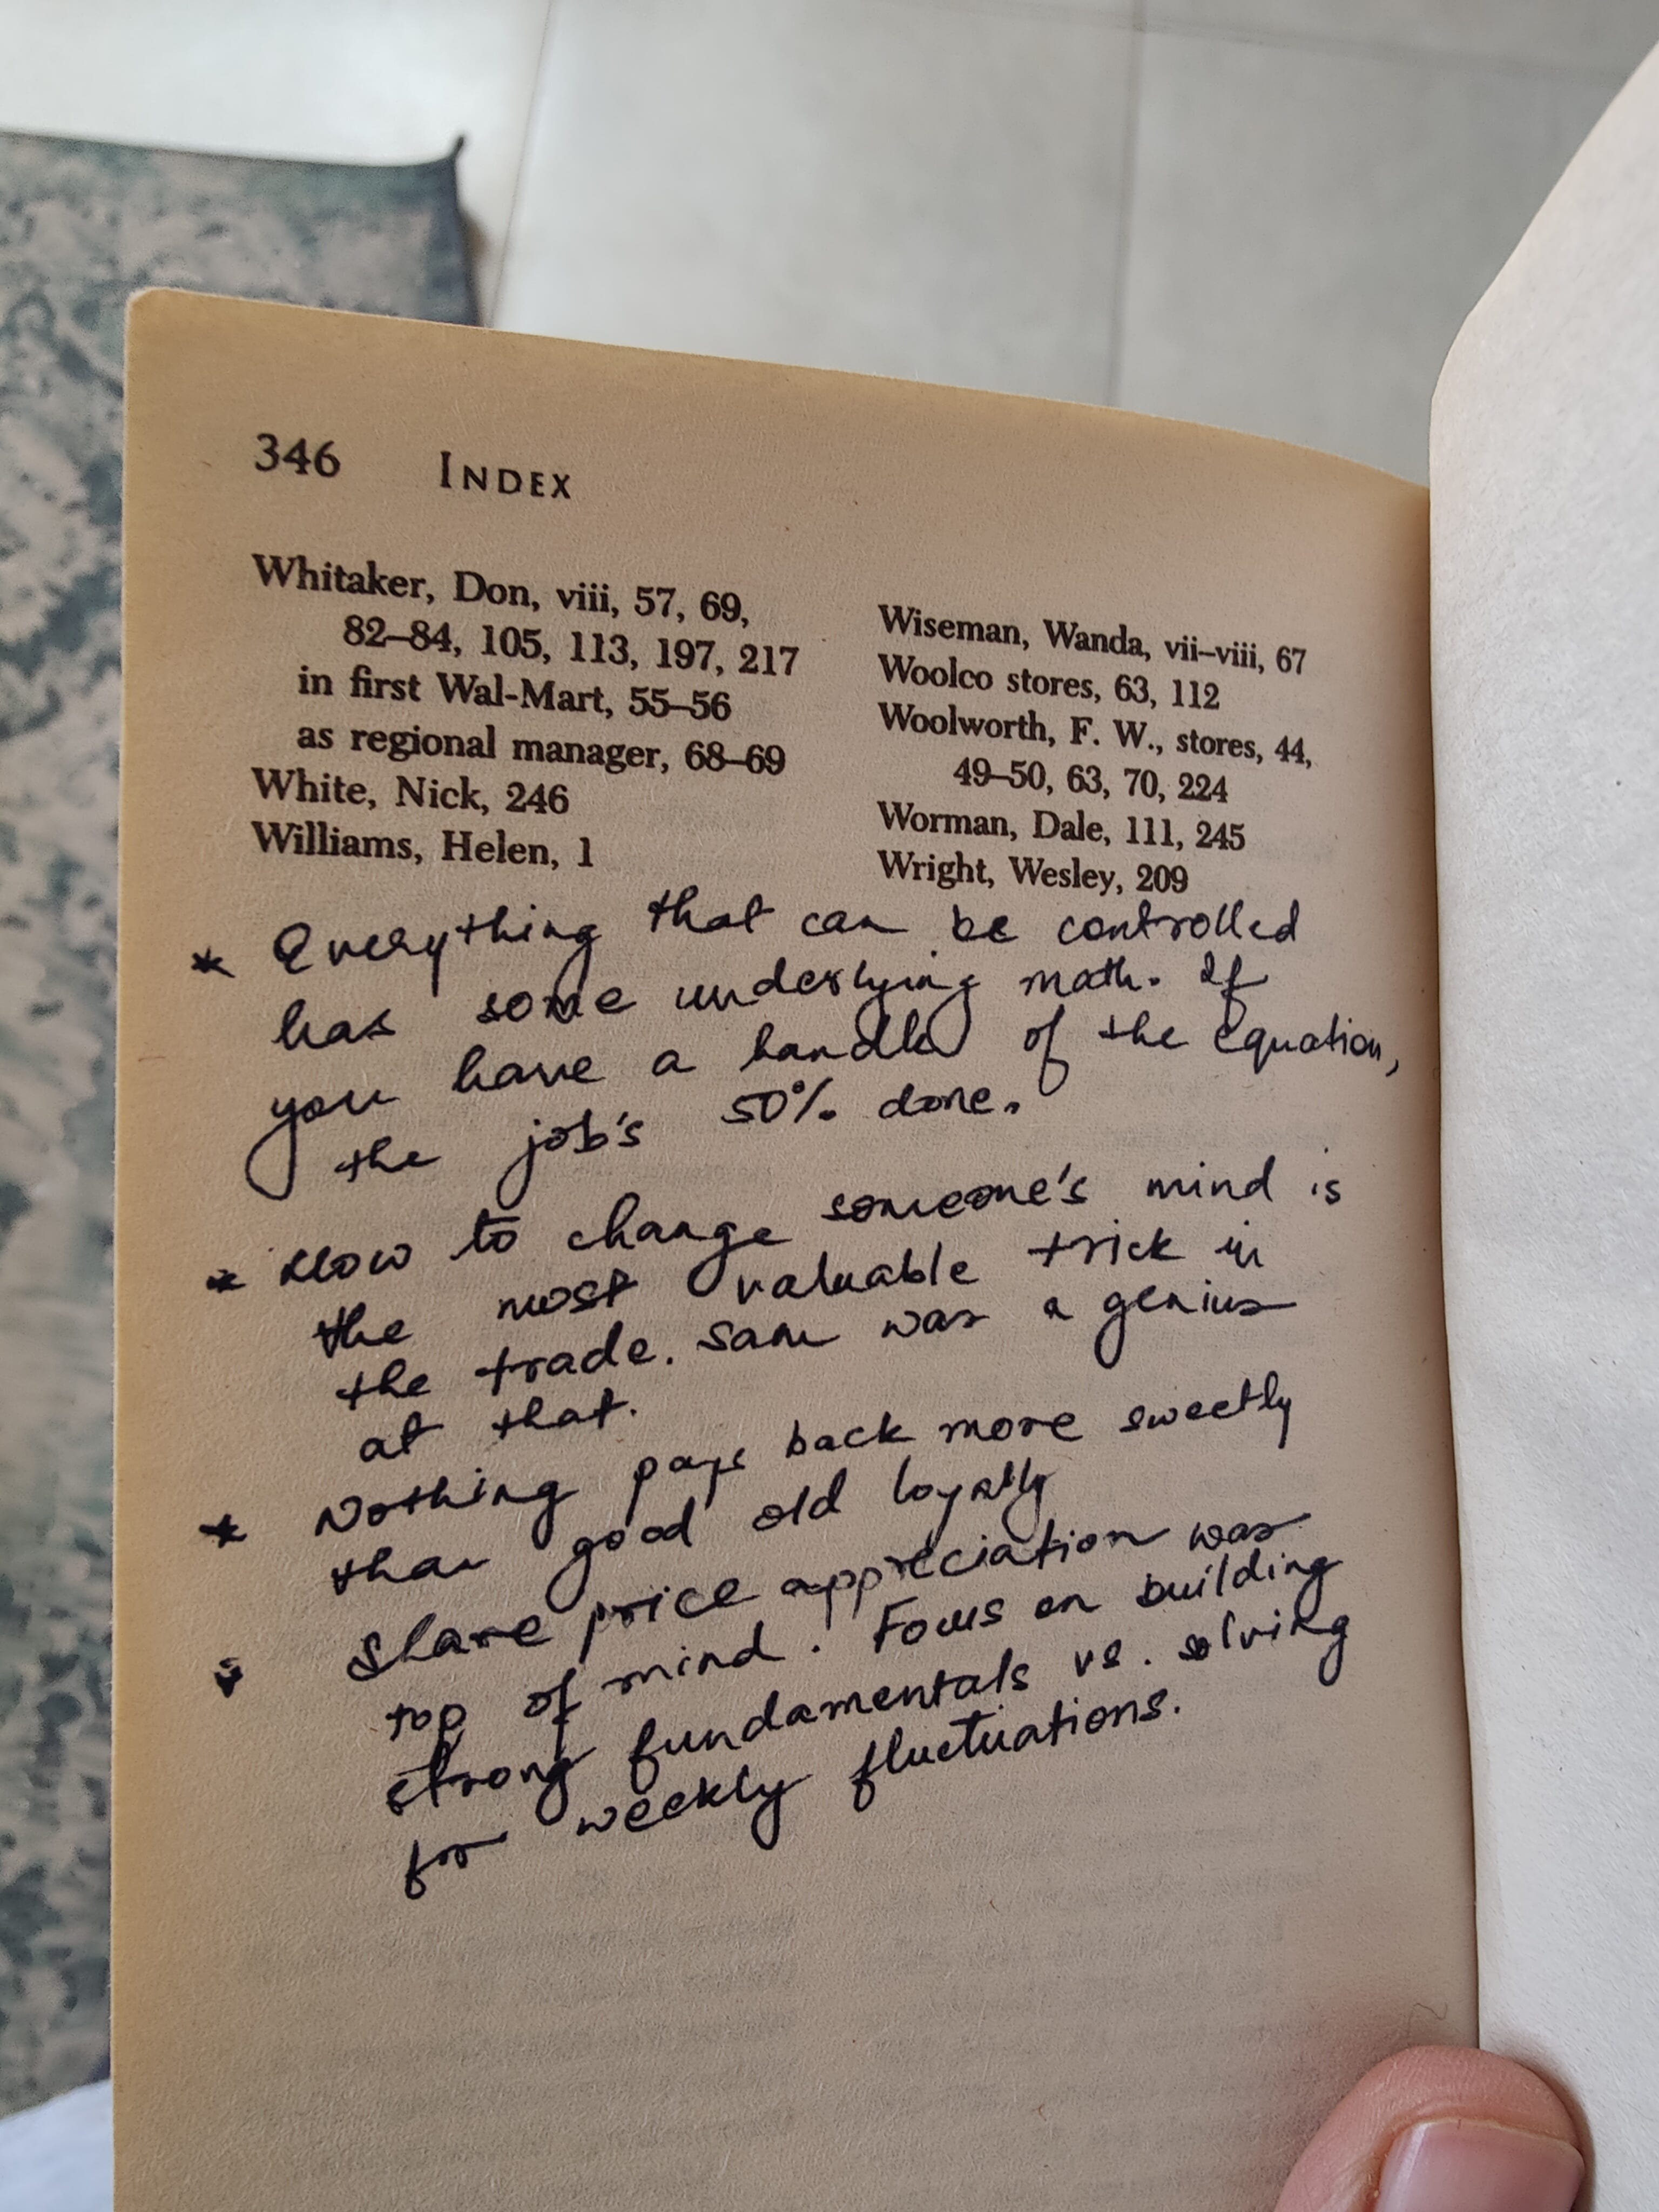 346 INDEX
Whitaker, Don, viii, 57, 69,
82–84, 105, 113, 197, 217
in first Wal-Mart, 55–56
as regional manager, 68–69
White, Nick, 246
Williams, Helen, 1
Wiseman, Wanda, vii–viii, 67
Woolco stores, 63, 112
Woolworth, F. W., stores, 44,
49–50, 63, 70, 224
Worman, Dale, 111, 245
Wright, Wesley, 209
* Everything that can be controlled
has some underlying math. If
you have a handle of the equation,
the job's 50% done.
* How to change someone's mind is
the most valuable trick in
the trade. Sam was a genius
at that.
* Nothing pays back more sweetly
than good old loyalty
* Share price appreciation was
top of mind. Focus on building
strong fundamentals vs. solving
for weekly fluctuations.